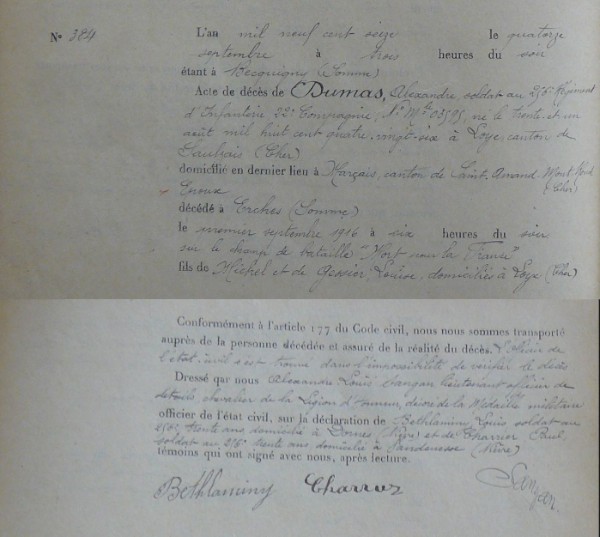 N° 384
L'an mil neuf cent seize le quatorze
septembre à trois heures du soir
étant à Becquigny (Somme)
Acte de décès de Dumas, Alexandre, soldat au 256e Régiment
d'Infanterie 22e Compagnie, N° Mle 03595, né le trente et un
août mil huit cent quatre-vingt-six à Loye, canton de
Saulzais (Cher)
domicilié en dernier lieu à Marçais, canton de Saint-Amand-Mont-Rond
(Cher)
décédé à Erches (Somme)
le premier septembre 1916 à six heures du soir
sur le champ de bataille "Mort pour la France"
fils de Michel et de Louise, domiciliés à Loye (Cher)
Conformément à l'article 177 du Code civil, nous nous sommes transporté
auprès de la personne décédée et assuré de la réalité du décès. L'officier de
l'état-civil s'est trouvé dans l'impossibilité de vérifier le décès
Dressé qar nous Alexandre Louis Sangan lieutenant officier de
détails, chevalier de la Légion d'honneur, décoré de la Médaille militaire
officier de l'état civil, sur la déclaration de Bethlaminy, Louis soldat au
256e, trente ans, domicilié à Dornes (Nièvre) et de Charrier Paul
soldat au 256e trente ans, domicilié à Vandenesse (Nièvre)
témoins qui ont signé avec nous, après lecture.
Bethlaminy Sangan